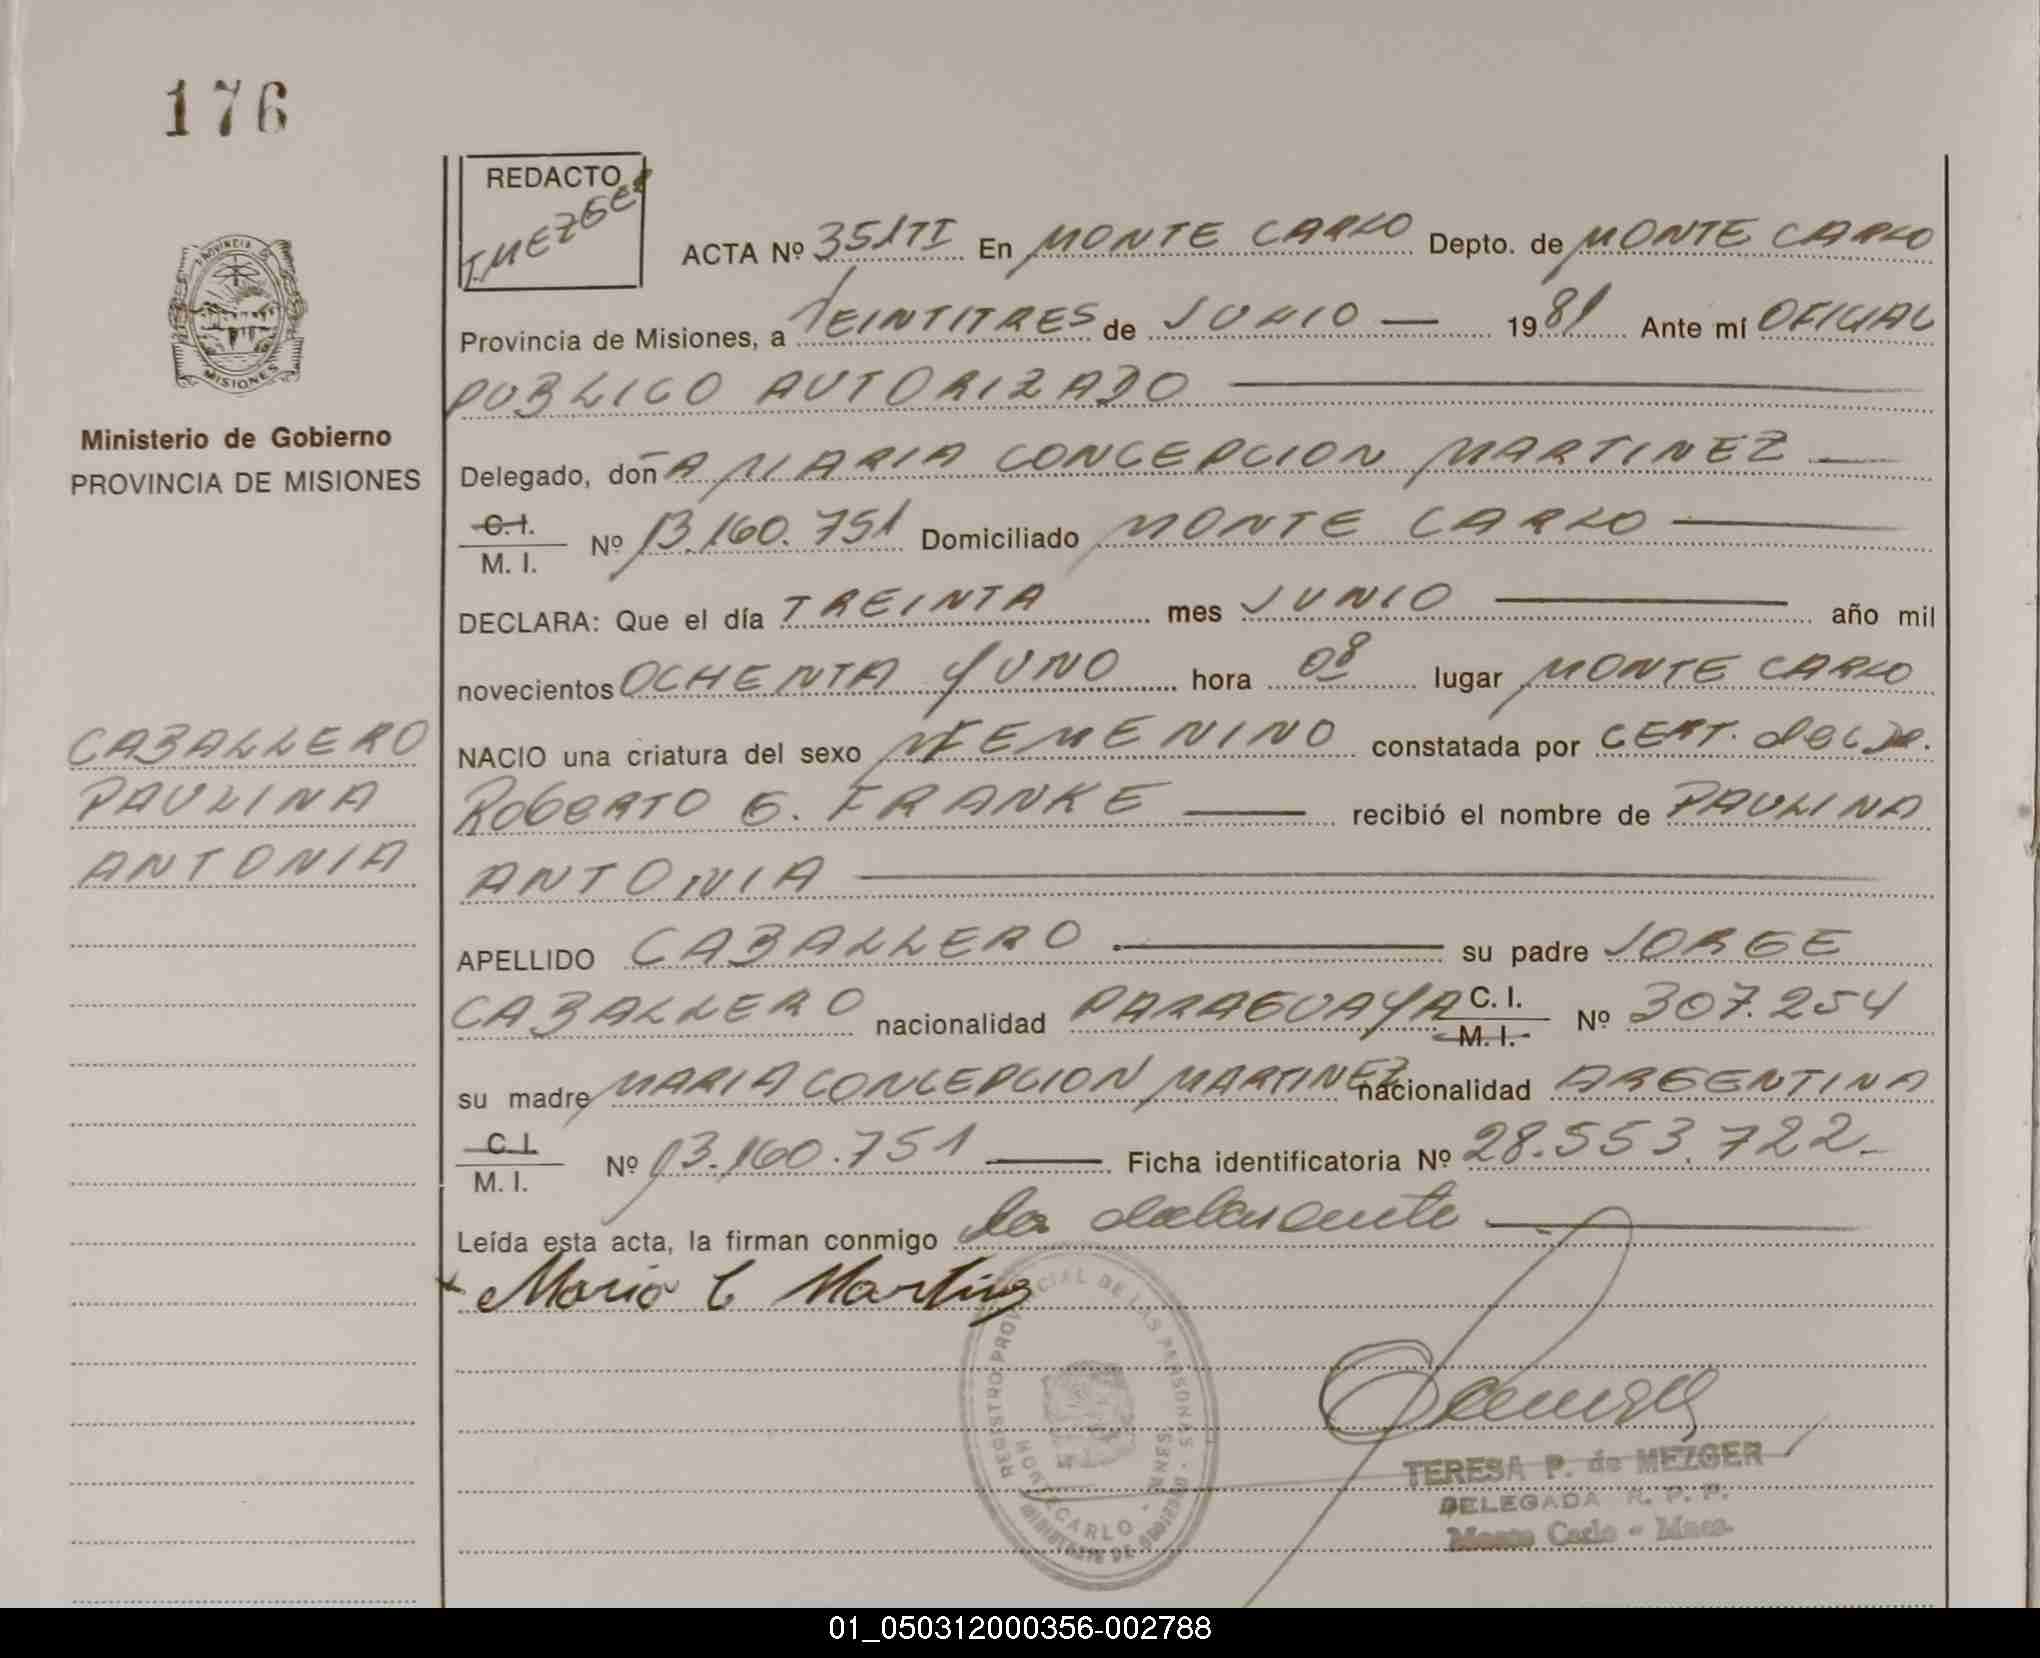 176
REDACTO
T. MEZGER
ACTA Nº 351 TI En MONTE CARLO Depto. de MONTE CARLO
Provincia de Misiones, a VEINTITRES de JULIO — 1981 Ante mí OFICIAL
PUBLICO AUTORIZADO
PROVINCIA
MISIONES
Ministerio de Gobierno
PROVINCIA DE MISIONES
Delegado, doñA MARIA CONCEPCION MARTINEZ
C.I.
M. I. Nº 13.160.751 Domiciliado MONTE CARLO
DECLARA: Que el día TREINTA mes JUNIO año mil
novecientos OCHENTA Y UNO hora 08 lugar MONTE CARLO
CABALLERO
PAULINA
ANTONIA
NACIO una criatura del sexo FEMENINO constatada por CERT. del Dr.
ROBERTO G. FRANKE recibió el nombre de PAULINA
ANTONIA
APELLIDO CABALLERO su padre JORGE
CABALLERO nacionalidad PARAGUAYA C. I. M. I. Nº 307.254
su madre MARIA CONCEPCION MARTINEZ nacionalidad ARGENTINA
C. I.
M. I. Nº 13.160.751 Ficha identificatoria Nº 28.553.722.-
Leída esta acta, la firman conmigo la declarante
Maria C Martinez
REGISTRO PROVINCIAL DE LAS PERSONAS
MONTECARLO
MINISTERIO DE GOBIERNO
TERESA P. de MEZGER
DELEGADA R. P. P.
Monte Carlo - Mnes.
01_050312000356-002788